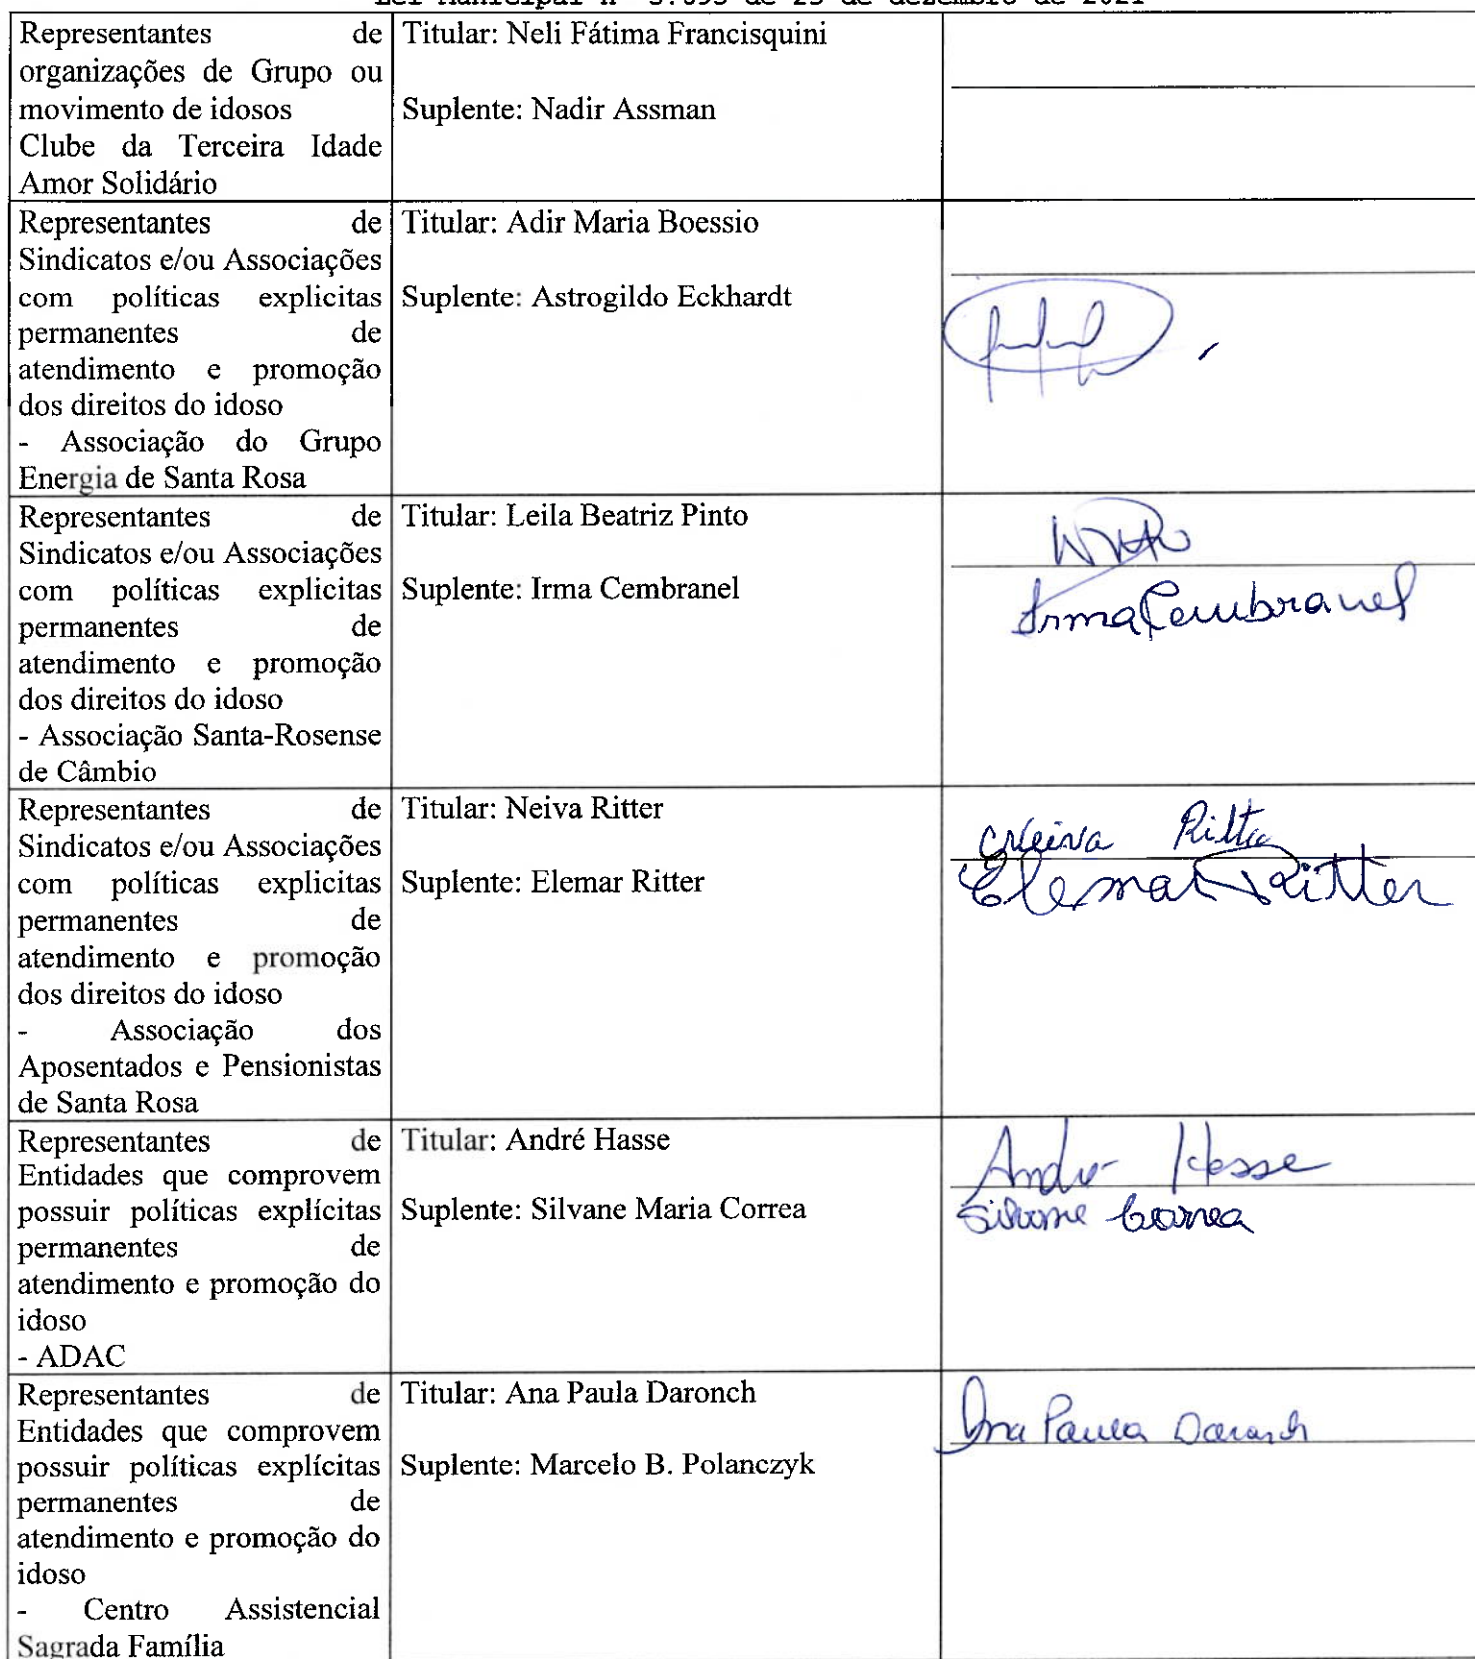 Lei Municipal nº 5.695 de 23 de dezembro de 2021
Representantes de
organizações de Grupo ou
movimento de idosos
Clube da Terceira Idade
Amor Solidário
Titular: Neli Fátima Francisquini
Suplente: Nadir Assman
Representantes de
Sindicatos e/ou Associações
com políticas explicitas
permanentes de
atendimento e promoção
dos direitos do idoso
- Associação do Grupo
Energia de Santa Rosa
Titular: Adir Maria Boessio
Suplente: Astrogildo Eckhardt
Representantes de
Sindicatos e/ou Associações
com políticas explicitas
permanentes de
atendimento e promoção
dos direitos do idoso
- Associação Santa-Rosense
de Câmbio
Titular: Leila Beatriz Pinto
Suplente: Irma Cembranel
Irma Cembranel
Representantes de
Sindicatos e/ou Associações
com políticas explicitas
permanentes de
atendimento e promoção
dos direitos do idoso
- Associação dos
Aposentados e Pensionistas
de Santa Rosa
Titular: Neiva Ritter
Suplente: Elemar Ritter
Neiva Ritter
Elemar Ritter
Representantes de
Entidades que comprovem
possuir políticas explícitas
permanentes de
atendimento e promoção do
idoso
- ADAC
Titular: André Hasse
Suplente: Silvane Maria Correa
André Hasse
Silvane Correa
Representantes de
Entidades que comprovem
possuir políticas explícitas
permanentes de
atendimento e promoção do
idoso
- Centro Assistencial
Sagrada Família
Titular: Ana Paula Daronch
Suplente: Marcelo B. Polanczyk
Ana Paula Daronch